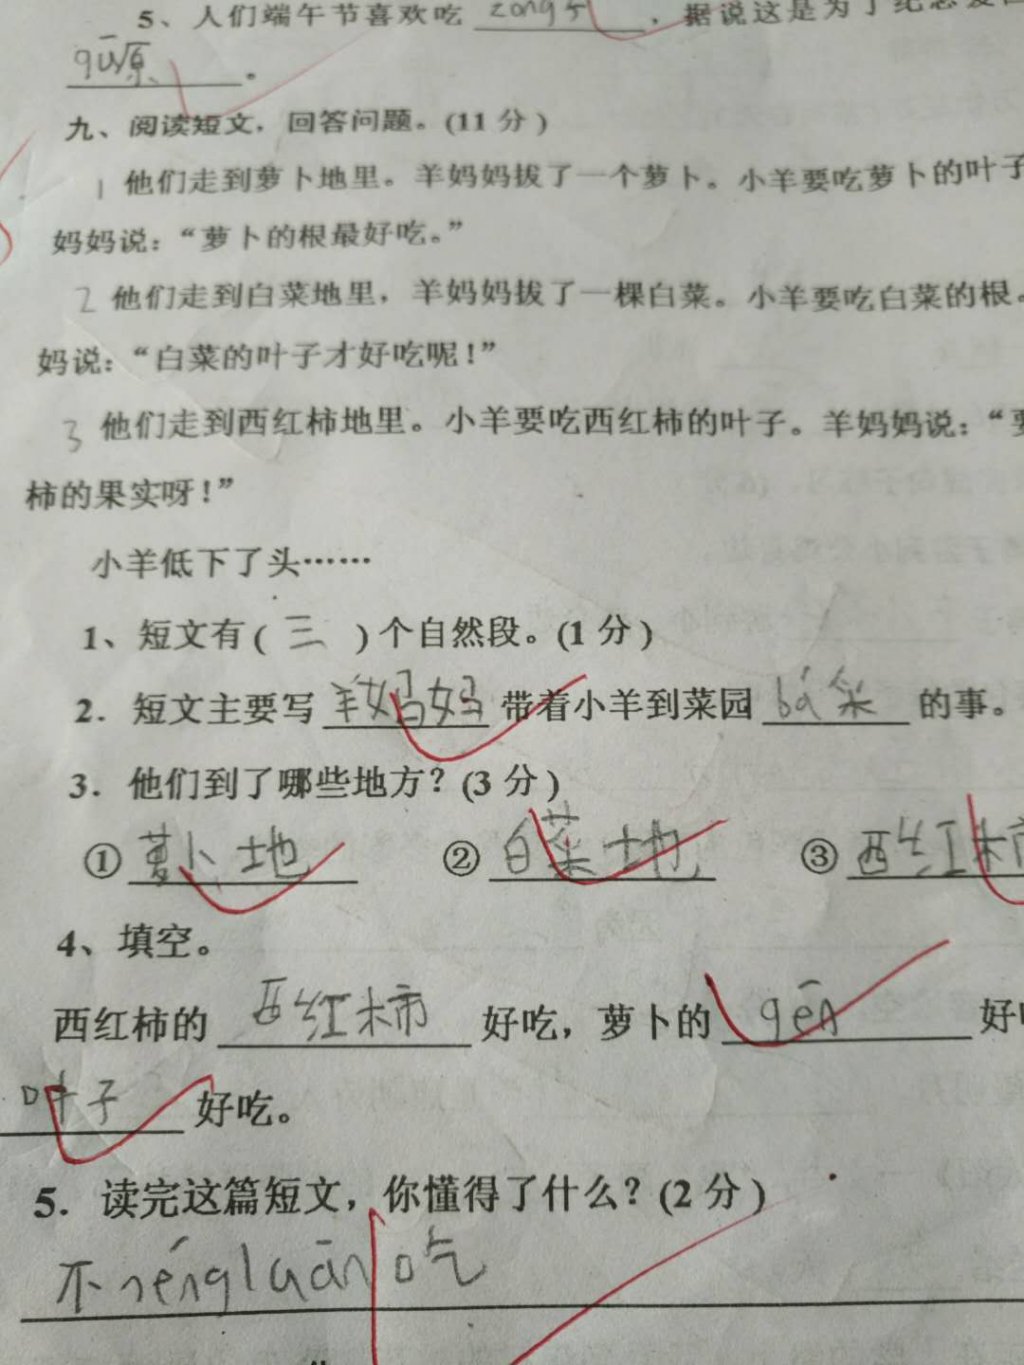 5、人们端午节喜欢吃 zong子，据说这是为了纪念爱
qū原。
九、阅读短文，回答问题。(11 分)
1 他们走到萝卜地里。羊妈妈拔了一个萝卜。小羊要吃萝卜的叶子
妈妈说：“萝卜的根最好吃。”
2 他们走到白菜地里，羊妈妈拔了一棵白菜。小羊要吃白菜的根。
妈说：“白菜的叶子才好吃呢！”
3 他们走到西红柿地里。小羊要吃西红柿的叶子。羊妈妈说：“要
柿的果实呀！”
小羊低下了头……
1、短文有( 三 )个自然段。(1 分)
2．短文主要写 羊妈妈 带着小羊到菜园 bá菜 的事。
3．他们到了哪些地方？(3 分)
① 萝卜地 ② 白菜地 ③ 西红柿
4、填空。
西红柿的 西红柿 好吃，萝卜的 gēn 好吃
叶子 好吃。
5．读完这篇短文，你懂得了什么？(2 分)
不néngluān吃